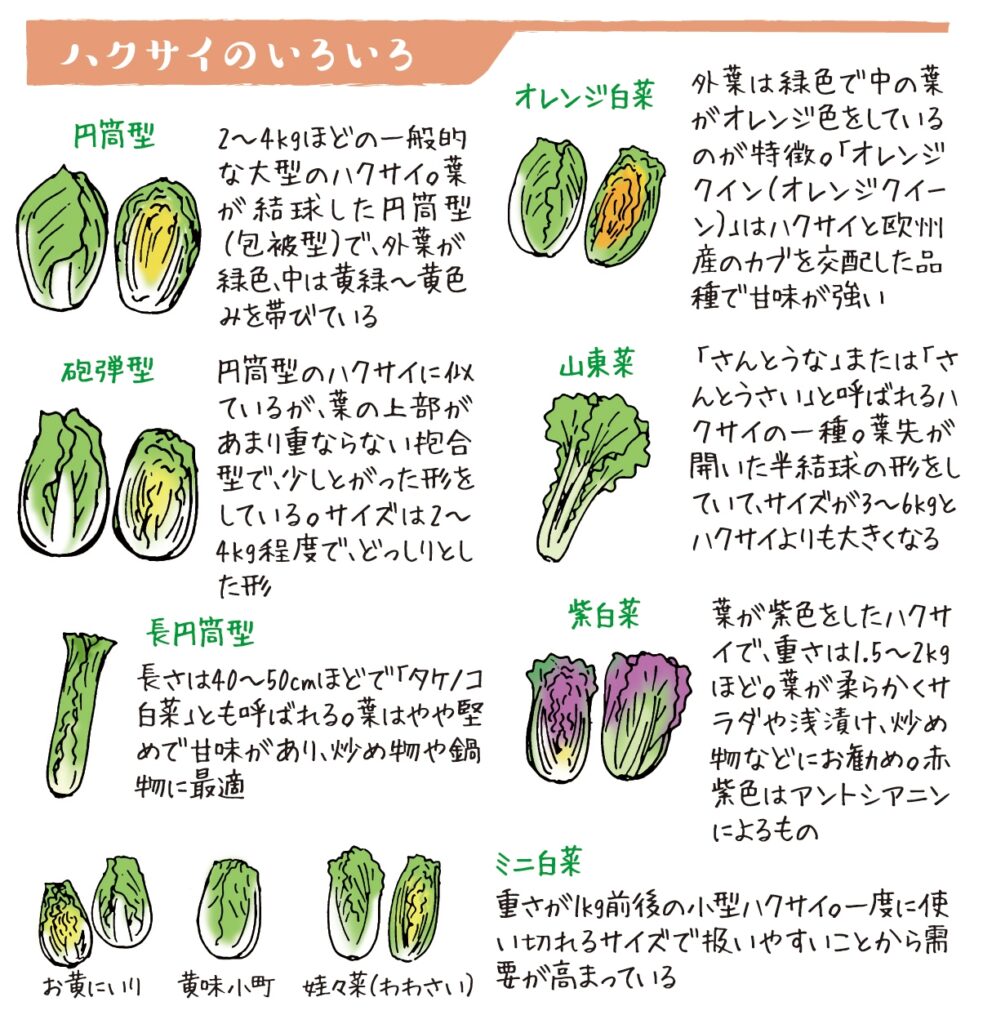 ハクサイのいろいろ
円筒型
2～4kgほどの一般的
な大型のハクサイ。葉
が結球した円筒型
(包被型)で、外葉が
緑色、中は黄緑～黄色
みを帯びている
砲弾型
円筒型のハクサイに似
ているが、葉の上部が
あまり重ならない抱合
型で、少しとがった形を
している。サイズは2～
4kg程度で、どっしりとし
た形
長円筒型
長さは40～50cmほどで「タケノコ
白菜」とも呼ばれる。葉はやや堅
めで甘味があり、炒め物や鍋
物に最適
オレンジ白菜
外葉は緑色で中の葉
がオレンジ色をしている
のが特徴。「オレンジ
クイン(オレンジクイー
ン)」はハクサイと欧州
産のカブを交配した品
種で甘味が強い
山東菜
「さんとうな」または「さ
んとうさい」と呼ばれるハ
クサイの一種。葉先が
開いた半結球の形をし
ていて、サイズが3～6kgと
ハクサイよりも大きくなる
紫白菜
葉が紫色をしたハクサ
イで、重さは1.5～2kg
ほど。葉が柔らかくサ
ラダや浅漬け、炒め
物などにお勧め。赤
紫色はアントシアニン
によるもの
ミニ白菜
重さが1kg前後の小型ハクサイ。一度に使
い切れるサイズで扱いやすいことから需
要が高まっている
お黄にいり
黄味小町
娃々菜(わわさい)